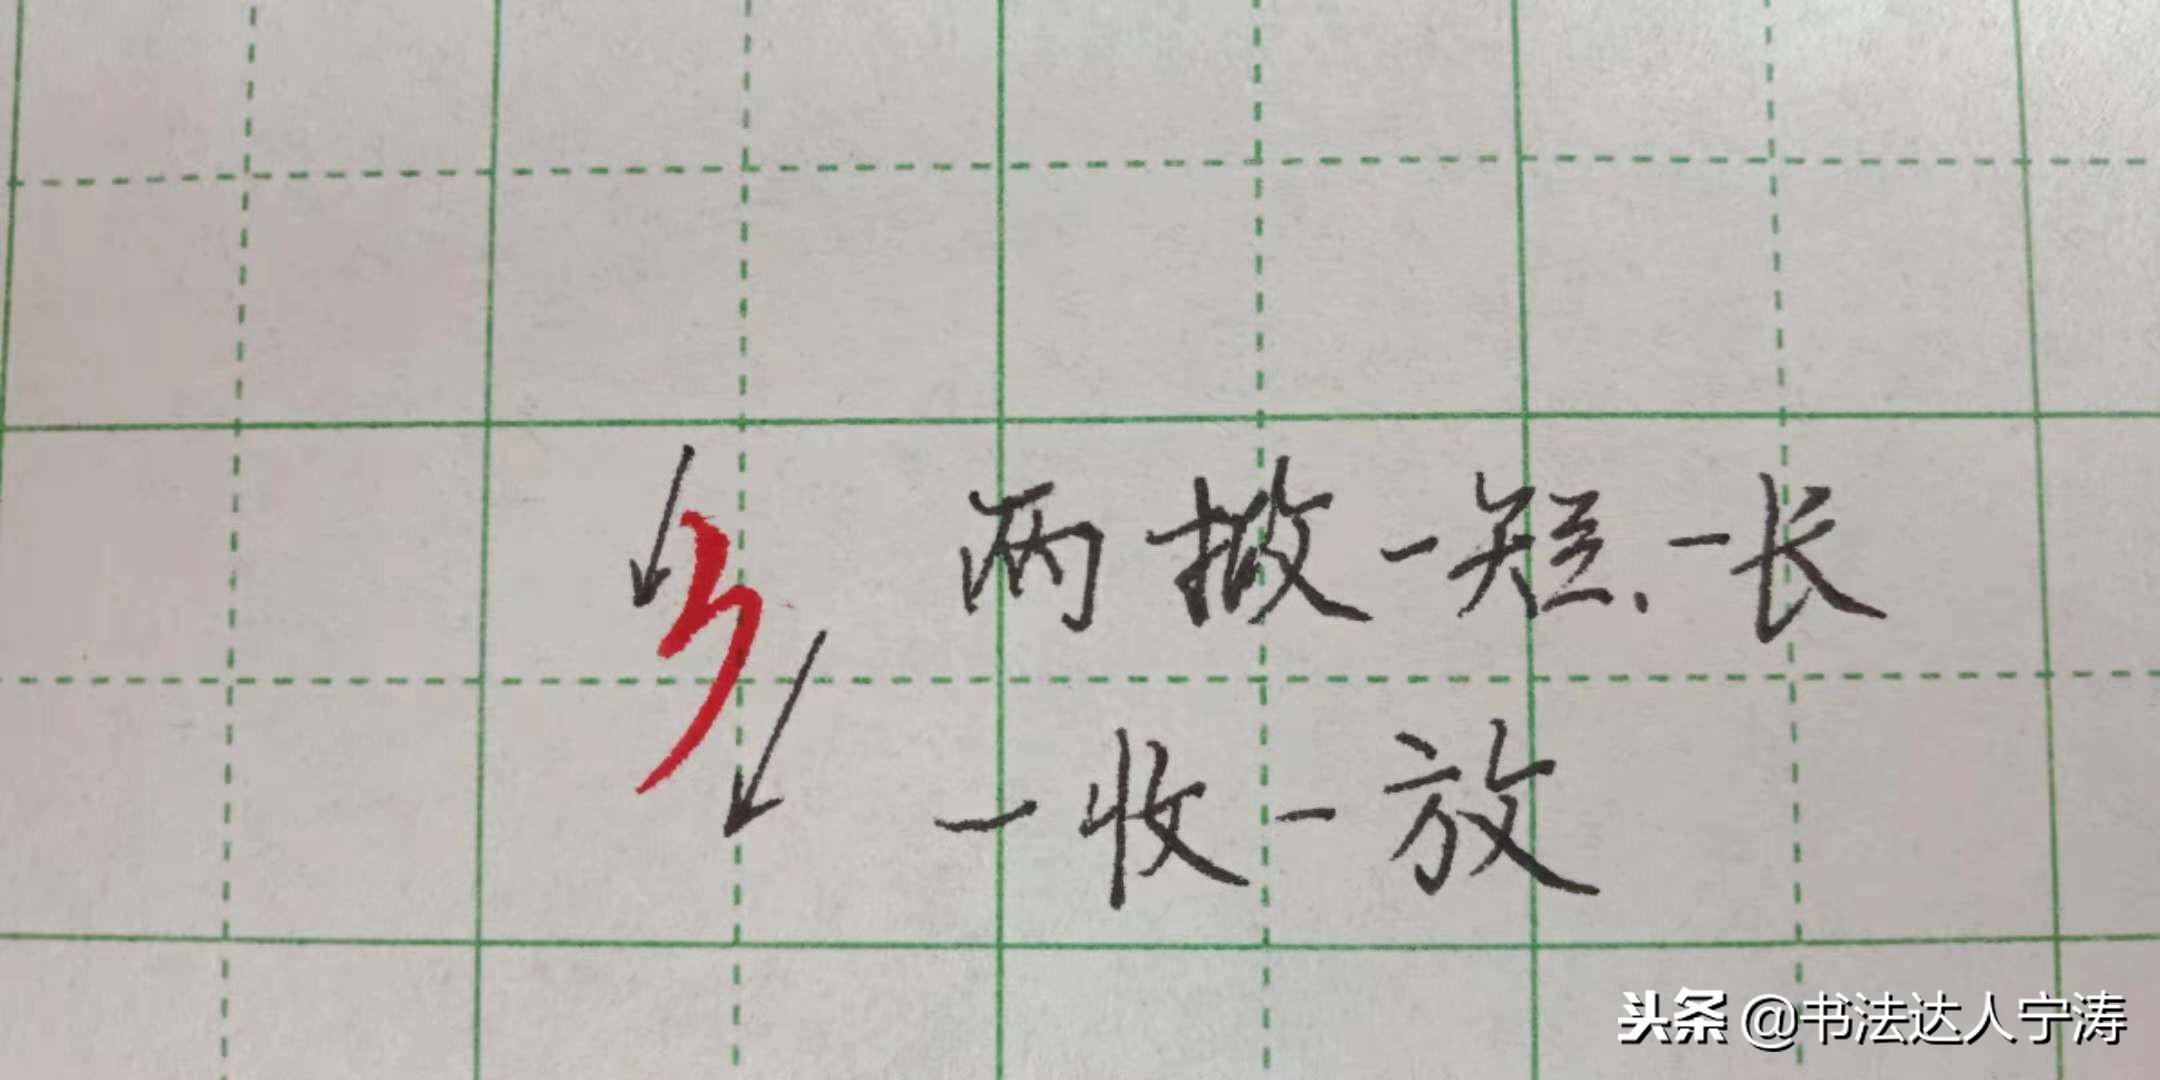 两撇一短、一长
一收一放
头条 @书法达人宁涛